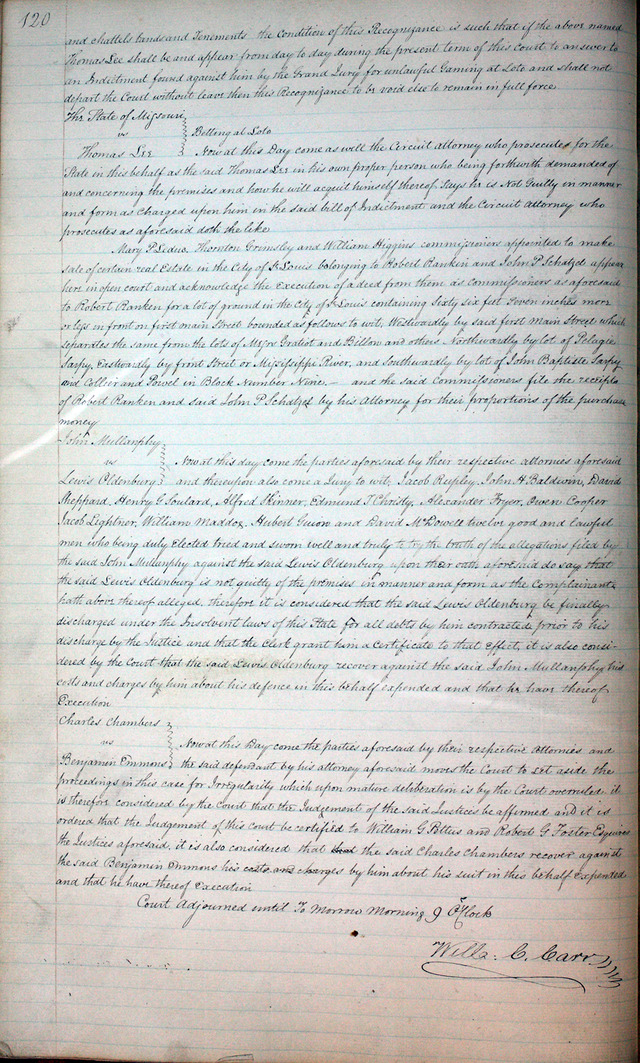 120
and chattels lands and Tenements the Condition of this Recognizance is such that if the above named
Thomas Lee shall be and appear from day to day during the present term of this court to answer to
an Indictment found against him by the Grand Jury for unlawful Gaming at Loto and shall not
depart the Court without leave then this Recognizance to be void else to remain in full force
The State of Missouri
vs Betting at Loto
Thomas Lee Now at this Day come as well the Circuit attorney who prosecutes for the
State in this behalf as the said Thomas Lee in his own proper person who being forthwith demanded of
and concerning the premises and how he will acquit himself thereof Says he is Not Guilty in manner
and form as charged upon him in the said bill of Indictment and the Circuit Attorney who
prosecutes as aforesaid doth the like
Mary P. Leduc, Thornton Grimsley and William Higgins commissioners appointed to make
sale of certain real Estate in the City of St Louis belonging to Robert Rankin and John P Schatzel appear
here in open court and acknowledge the Execution of a deed from them as Commissioners as aforesaid
to Robert Ranken for a lot of ground in the City of St Louis containing Sixty six feet Seven inches more
or less in front on first main Street bounded as follows to wit, Westwardly by said first main Street which
separates the same from the lots of Major Gratiot and Billow and others Northwardly by lot of Pelagie
Sarpy, Eastwardly by front Street or Missisippi River, and Southwardly by lot of John Baptiste Sarpy
and Collier and Powel in Block Number Nine, and the said Commissioners file the receipts
of Robert Ranken and said John P Schatzel by his Attorney for their proportions of the purchase
money
John Mullanphy
vs Now at this day come the parties aforesaid by their respective attornies aforesaid
Lewis Oldenburg and thereupon also come a Jury to wit, Jacob Repley, John H. Baldwin, David
Sheppard, Henry G Soulard, Alfred Skinner, Edmund T Christy, Alexander Fryer, Owen Cooper
Jacob Lightner, William Maddox, Hubert Guion and David McDowell twelve good and lawful
men who being duly Elected tried and sworn well and truly to try the truth of the allegations filed by
the said John Mullanphy against the said Lewis Oldenburg upon their oath aforesaid do say that
the said Lewis Oldenburg is not guilty of the premises in manner and form as the Complainant
hath above thereof alleged, therefore it is considered that the said Lewis Oldenburg be finally
discharged under the Insolvent laws of this State for all debts by him contracted prior to his
discharge by the Justice and that the Clerk grant him a certificate to that Effect, it is also consi-
dered by the Court that the said Lewis Oldenburg recover against the said John Mullanphy his
costs and charges by him about his defence in this behalf expended and that he have thereof
Execution
Charles Chambers
vs Now at this Day come the parties aforesaid by their respective Attornies and
Benjamin Emmons the said defendant by his attorney aforesaid moves the Court to set aside the
proceedings in this case for Irregularity which upon mature deliberation is by the Court overruled it
is therefore considered by the Court that the Judgement of the said Justices be affirmed and it is
ordered that the Judgement of this court be certified to William G Pettus and Robert G Foster Esquires
the Justices aforesaid, it is also considered that that the said Charles Chambers recover against
the said Benjamin Emmons his costs and charges by him about his suit in this behalf Expended
and that he have thereof Execution
Court Adjourned until To Morrow Morning 9 O'Clock
Will. C. Carr